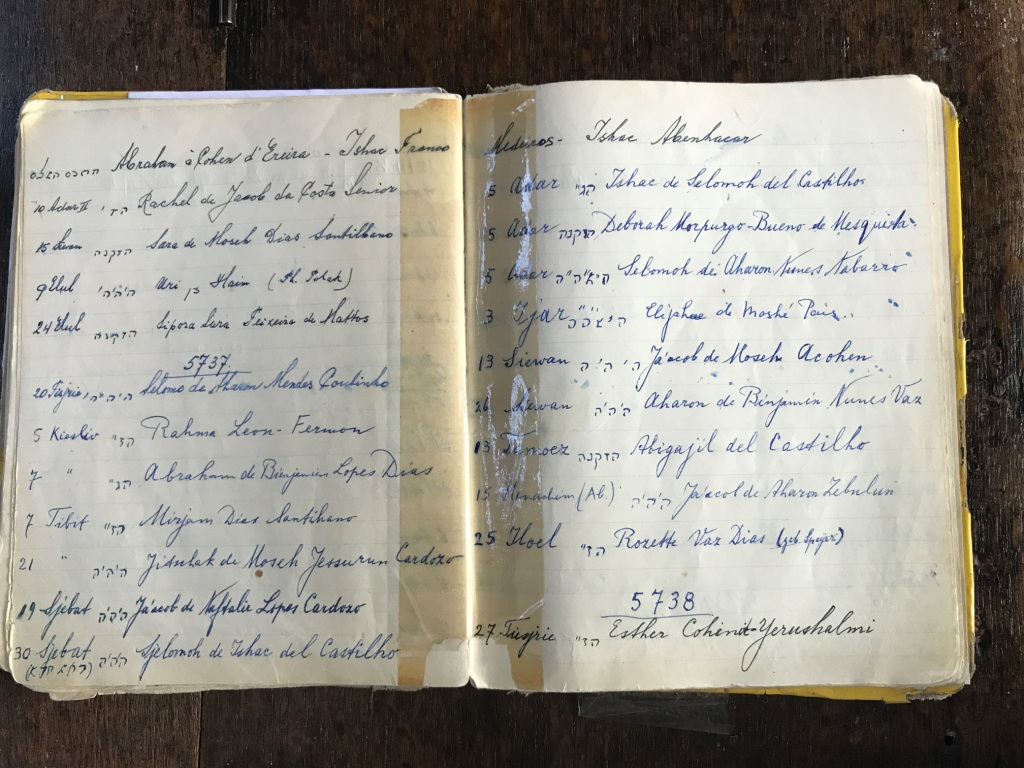 Abraham à Cohen d'Ereira - Ishac Franco Medeiros - Ishac Abenhacar
10 Adar II הז"י Rachel de Jacob da Costa Senior
15 הזקנה Sara de Moseh Dias Santilhano
9 Elul ה'ה'ה' Uri בן Haim
24 Elul הזקנה Sipora Sara Teixeira de Mattos
5737
20 Tisjrie Selomo de Aharon Mendes Coutinho
5 Kieslév הז" Rahma Leon-Fermon
7 " הג" Abraham de Binjamin Lopes Dias
7 Tibét הז" Mirjam Dias Santihano
21 " ה'ה'ה Jitschak de Moseh Jessurun Cardozo
19 Sjebat ה'ה'ה Ja'acob de Naftalie Lopes Cardozo
30 Sjebat ה'ה'ה Sjelomoh de Ishac del Castilho
5 Adar הג" Ishac de Selomoh del Castilho
5 Adar הזקנה Deborah Morpurgo-Bueno de Mesquita
5 Adar Selomoh de Aharon Nunes Nabarro
3 Ijar de Moshé Pais
13 Siewan ה'ה'ה Ja'acob de Moseh Acohen
26 Siewan ה'ה'ה Aharon de Binjamin Nunes Vaz
13 Tamoez הזקנה Abigajil del Castilho
15 Menachem (Ab) ה'ה'ה Ja'acob de Aharon Zebulun
25 Iloel הז" Rozette Vaz Dias (geb. Speyer)
5738
27 Tisjrie הז" Esther Cohen-Yerushalmi